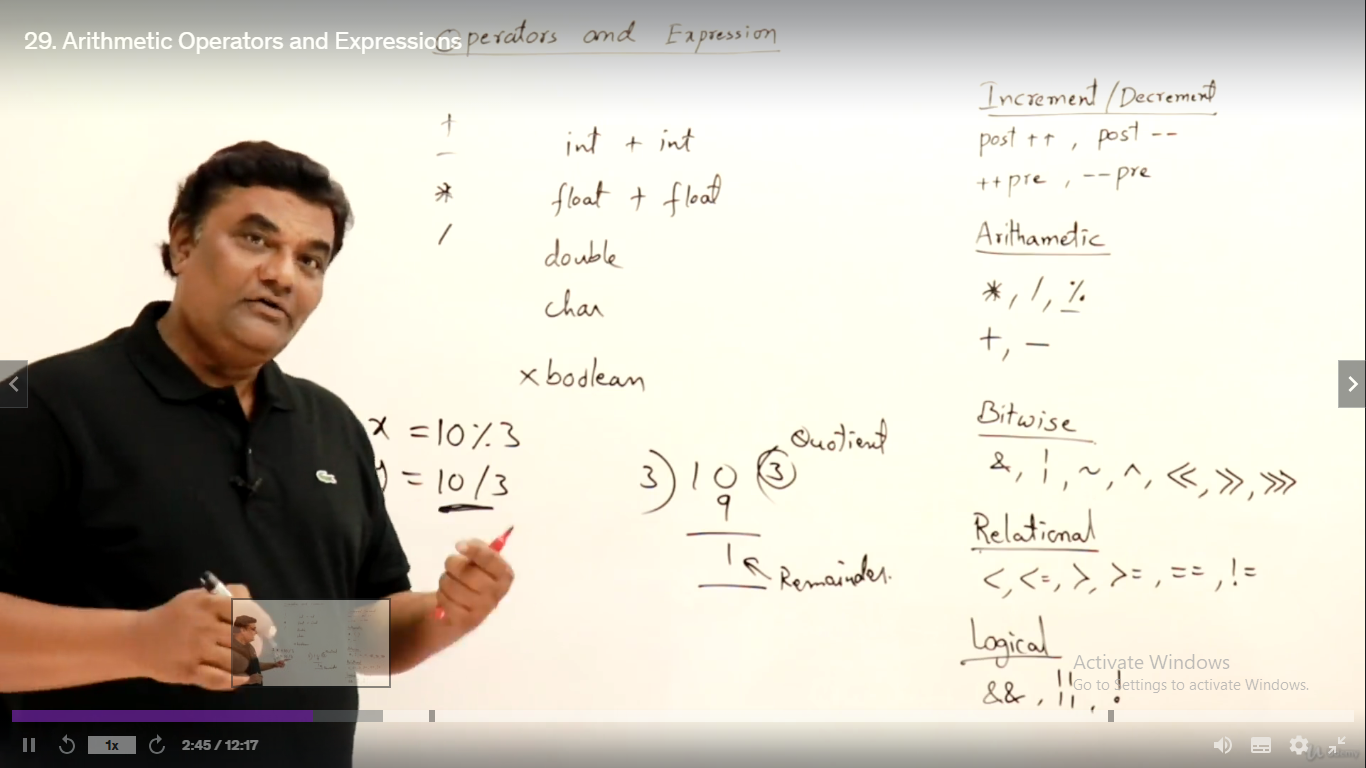 29. Arithmetic Operators and Expressions
Operators and Expression
+
-
*
/
int + int
float + float
double
char
x boolean
x = 10 % 3
y = 10 / 3
3) 10 (3 Quotient
9
1 Remainder.
Increment/Decrement
post ++ , post --
++pre , --pre
Arithametic
*, /, %
+, -
Bitwise
&, |, ~, ^, <<, >>, >>>
Relational
<, <=, >, >=, ==, !=
Logical
&&, ||, !
Activate Windows
Go to Settings to activate Windows.
1x
2:45 / 12:17